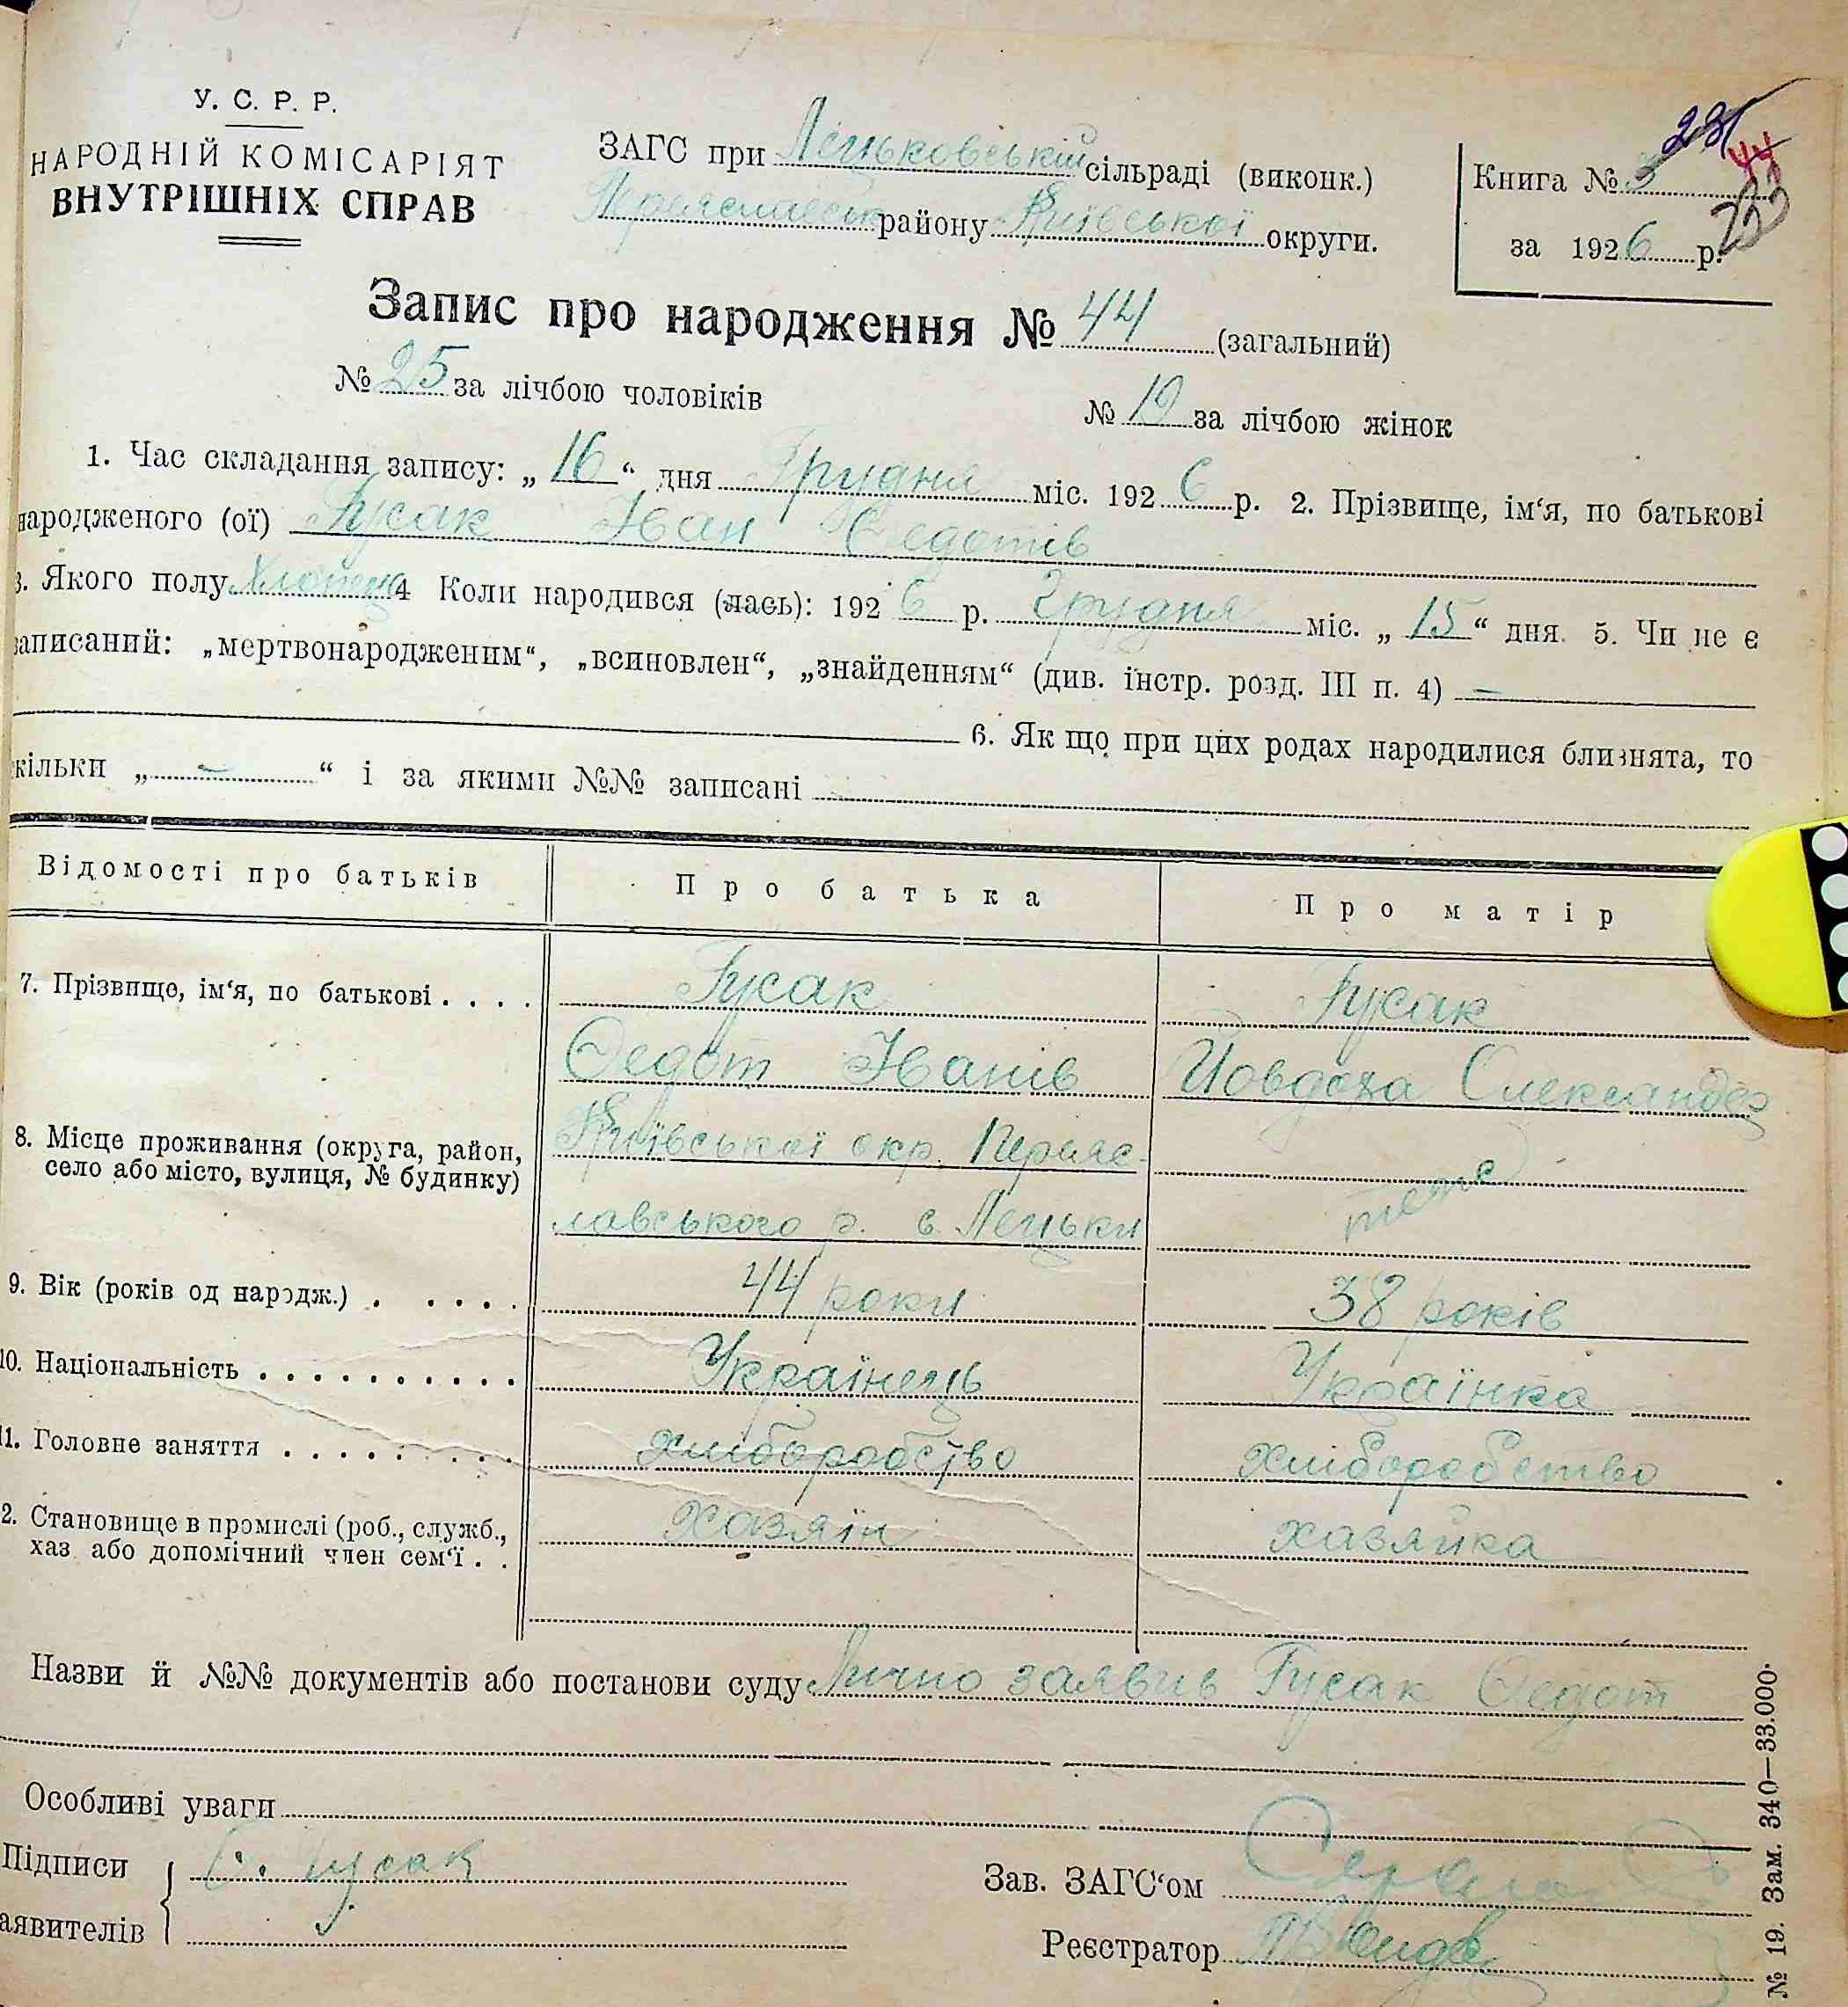 У. С. Р. Р.
НАРОДНІЙ КОМІСАРІЯТ
ВНУТРІШНІХ СПРАВ
ЗАГС при Лецьковській сільраді (виконк.)
Переяславськ району Київської округи.
Книга № 3
231
44
222
за 1926 р.
Запис про народження № 44 (загальний)
№ 25 за лічбою чоловіків № 19 за лічбою жінок
1. Час складання запису: „16“ дня Грудня міс. 1926 р. 2. Прізвище, ім‘я, по батькові
народженого (ої) Гусак Іван Федотів
3. Якого полу Хлопець 4 Коли народився (лась): 1926 р. Грудня міс. „15“ дня. 5. Чи не є
записаний: „мертвонародженим“, „всиновлен“, „знайденням“ (див. інстр. розд. III п. 4) —
6. Як що при цих родах народилися близнята, то
кільки „ — “ і за якими №№ записані
Відомості про батьків Про батька Про матір
7. Прізвище, ім‘я, по батькові . . . . Гусак Гусак
Ѳедот Іванів Йовдоха Олександр
8. Місце проживання (округа, район, Київської окр. Переяс-
село або місто, вулиця, № будинку) теже
лавського р. с. Лецьки
9. Вік (років од народж.) . . . . . 44 роки 38 років
10. Національність . . . . . . . . . . Українець Українка
11. Головне заняття . . . . . . . . . хліборобство хліборобство
2. Становище в промислі (роб., служб., хазяїн хазяйка
хаз. або допомічний член сем‘ї . .
Назви й №№ документів або постанови суду Лично заявив Гусак Ѳедот
Особливі уваги
Підписи Ѳ. Гусак
аявителів
Зав. ЗАГС‘ом
Реєстратор
№ 19. Зам. 340—33.000.